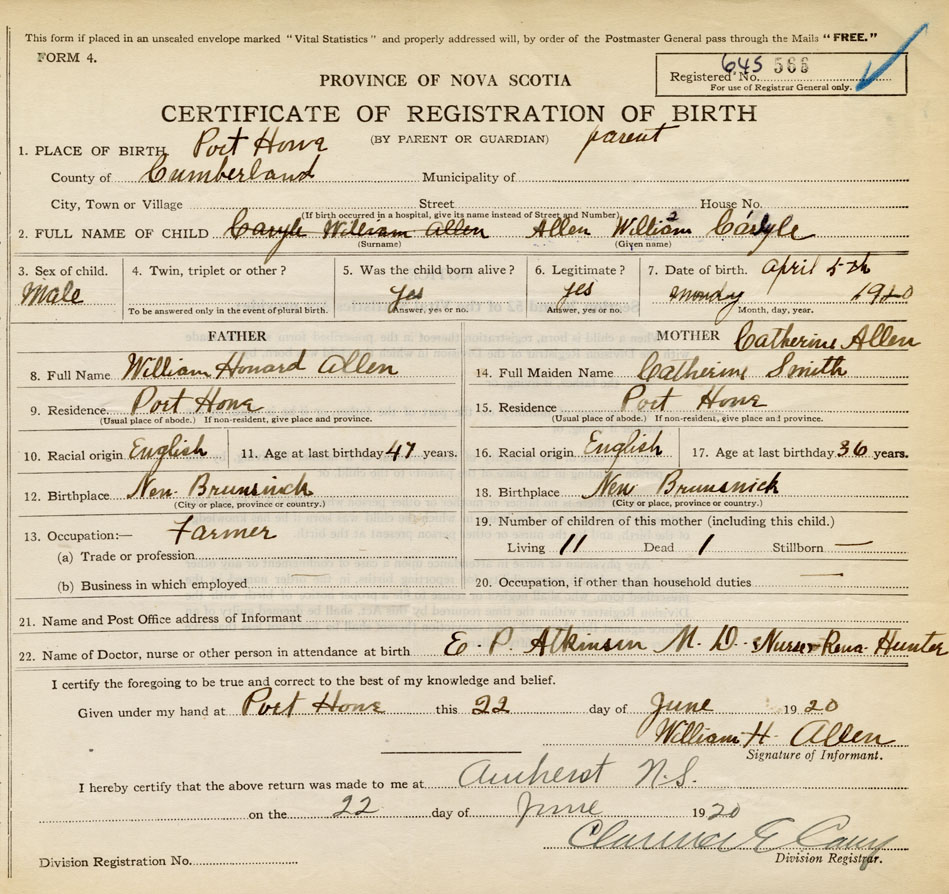 This form if placed in an unsealed envelope marked "Vital Statistics" and properly addressed will, by order of the Postmaster General pass through the Mails "FREE."
FORM 4.
645 566
Registered No.
For use of Registrar General only.
PROVINCE OF NOVA SCOTIA
CERTIFICATE OF REGISTRATION OF BIRTH
(BY PARENT OR GUARDIAN) parent
1. PLACE OF BIRTH Port Howe
County of Cumberland Municipality of
City, Town or Village Street House No.
(If birth occurred in a hospital, give its name instead of Street and Number)
2. FULL NAME OF CHILD Caryle William Allen Allen William Carlyle
(Surname) (Given name)
3. Sex of child. 4. Twin, triplet or other? 5. Was the child born alive? 6. Legitimate? 7. Date of birth. April 5th
Male yes yes Monday 1920
To be answered only in the event of plural birth. Answer, yes or no. Answer, yes or no. Month, day, year.
FATHER
8. Full Name William Howard Allen
9. Residence. Port Howe
(Usual place of abode.) If non-resident, give place and province.
10. Racial origin English 11. Age at last birthday 47 years.
12. Birthplace New Brunswick
(City or place, province or country.)
13. Occupation:— Farmer
(a) Trade or profession
(b) Business in which employed
MOTHER Catherine Allen
14. Full Maiden Name Catherine Smith
15. Residence Port Howe
(Usual place of abode.) If non-resident, give place and province.
16. Racial origin English 17. Age at last birthday 36 years.
18. Birthplace New Brunswick
(City or place, province or country.)
19. Number of children of this mother (including this child.)
Living 11 Dead 1 Stillborn —
20. Occupation, if other than household duties —
21. Name and Post Office address of Informant
22. Name of Doctor, nurse or other person in attendance at birth E. P. Atkinson M. D. & Nurse Rena Hunter
I certify the foregoing to be true and correct to the best of my knowledge and belief.
Given under my hand at Port Howe this 22 day of June 1920
William H. Allen
Signature of Informant.
I hereby certify that the above return was made to me at Amherst N.S.
on the 22 day of June 1920
Clarence E
Division Registrar.
Division Registration No.